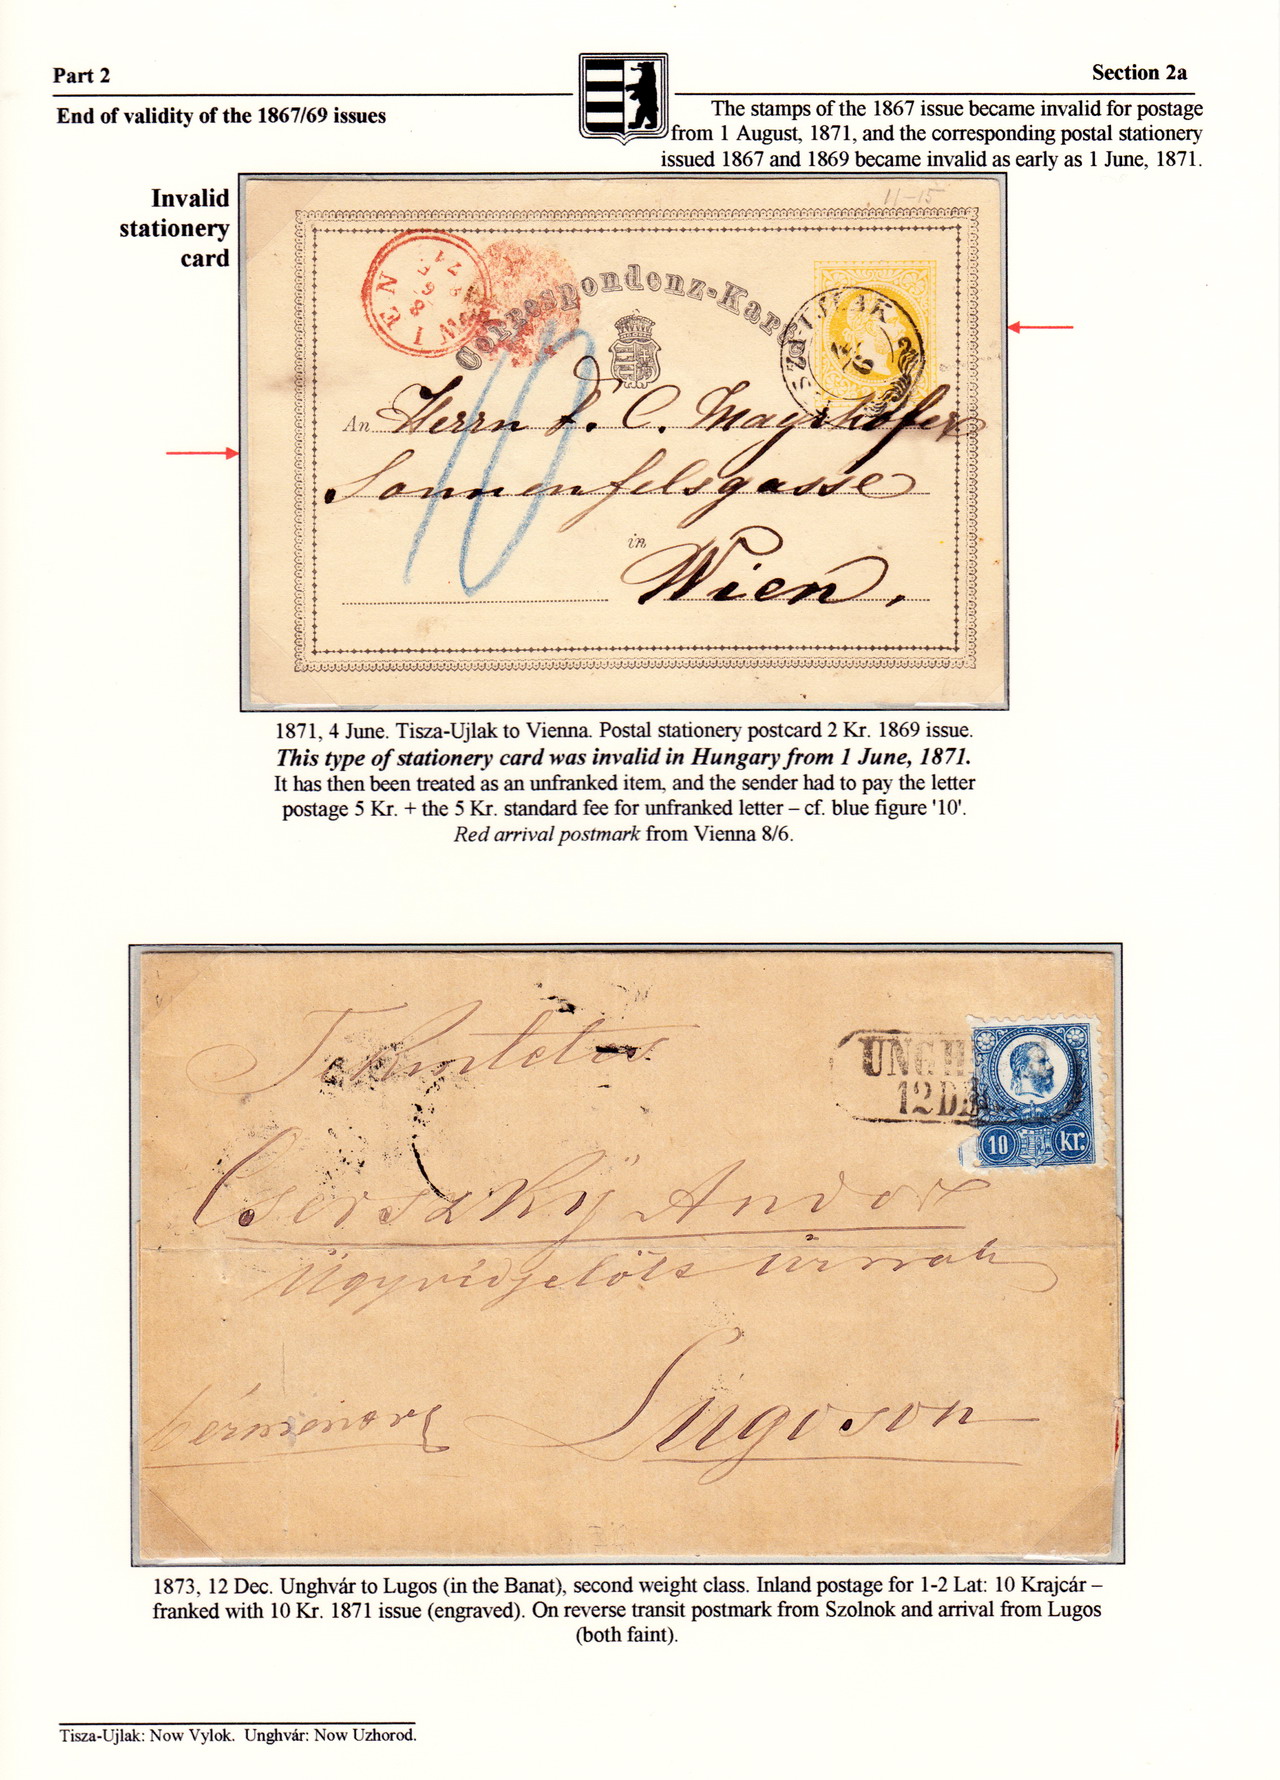 Part 2
Section 2a
End of validity of the 1867/69 issues
The stamps of the 1867 issue became invalid for postage
from 1 August, 1871, and the corresponding postal stationery
issued 1867 and 1869 became invalid as early as 1 June, 1871.
Invalid
stationery
card
11-15
WIEN
8/6
71
Correspondenz-Karte
An Herrn C. Mayrhofer
Sonnenfelsgasse
in
Wien.
10
1871, 4 June. Tisza-Ujlak to Vienna. Postal stationery postcard 2 Kr. 1869 issue.
This type of stationery card was invalid in Hungary from 1 June, 1871.
It has then been treated as an unfranked item, and the sender had to pay the letter
postage 5 Kr. + the 5 Kr. standard fee for unfranked letter – cf. blue figure '10'.
Red arrival postmark from Vienna 8/6.
UNGH
12 DE
10 kr.
Tekintetes
Cserszky Andor
Ügyvédjelölt úrnak
Lugoson
1873, 12 Dec. Unghvár to Lugos (in the Banat), second weight class. Inland postage for 1-2 Lat: 10 Krajcár –
franked with 10 Kr. 1871 issue (engraved). On reverse transit postmark from Szolnok and arrival from Lugos
(both faint).
Tisza-Ujlak: Now Vylok. Unghvár: Now Uzhorod.